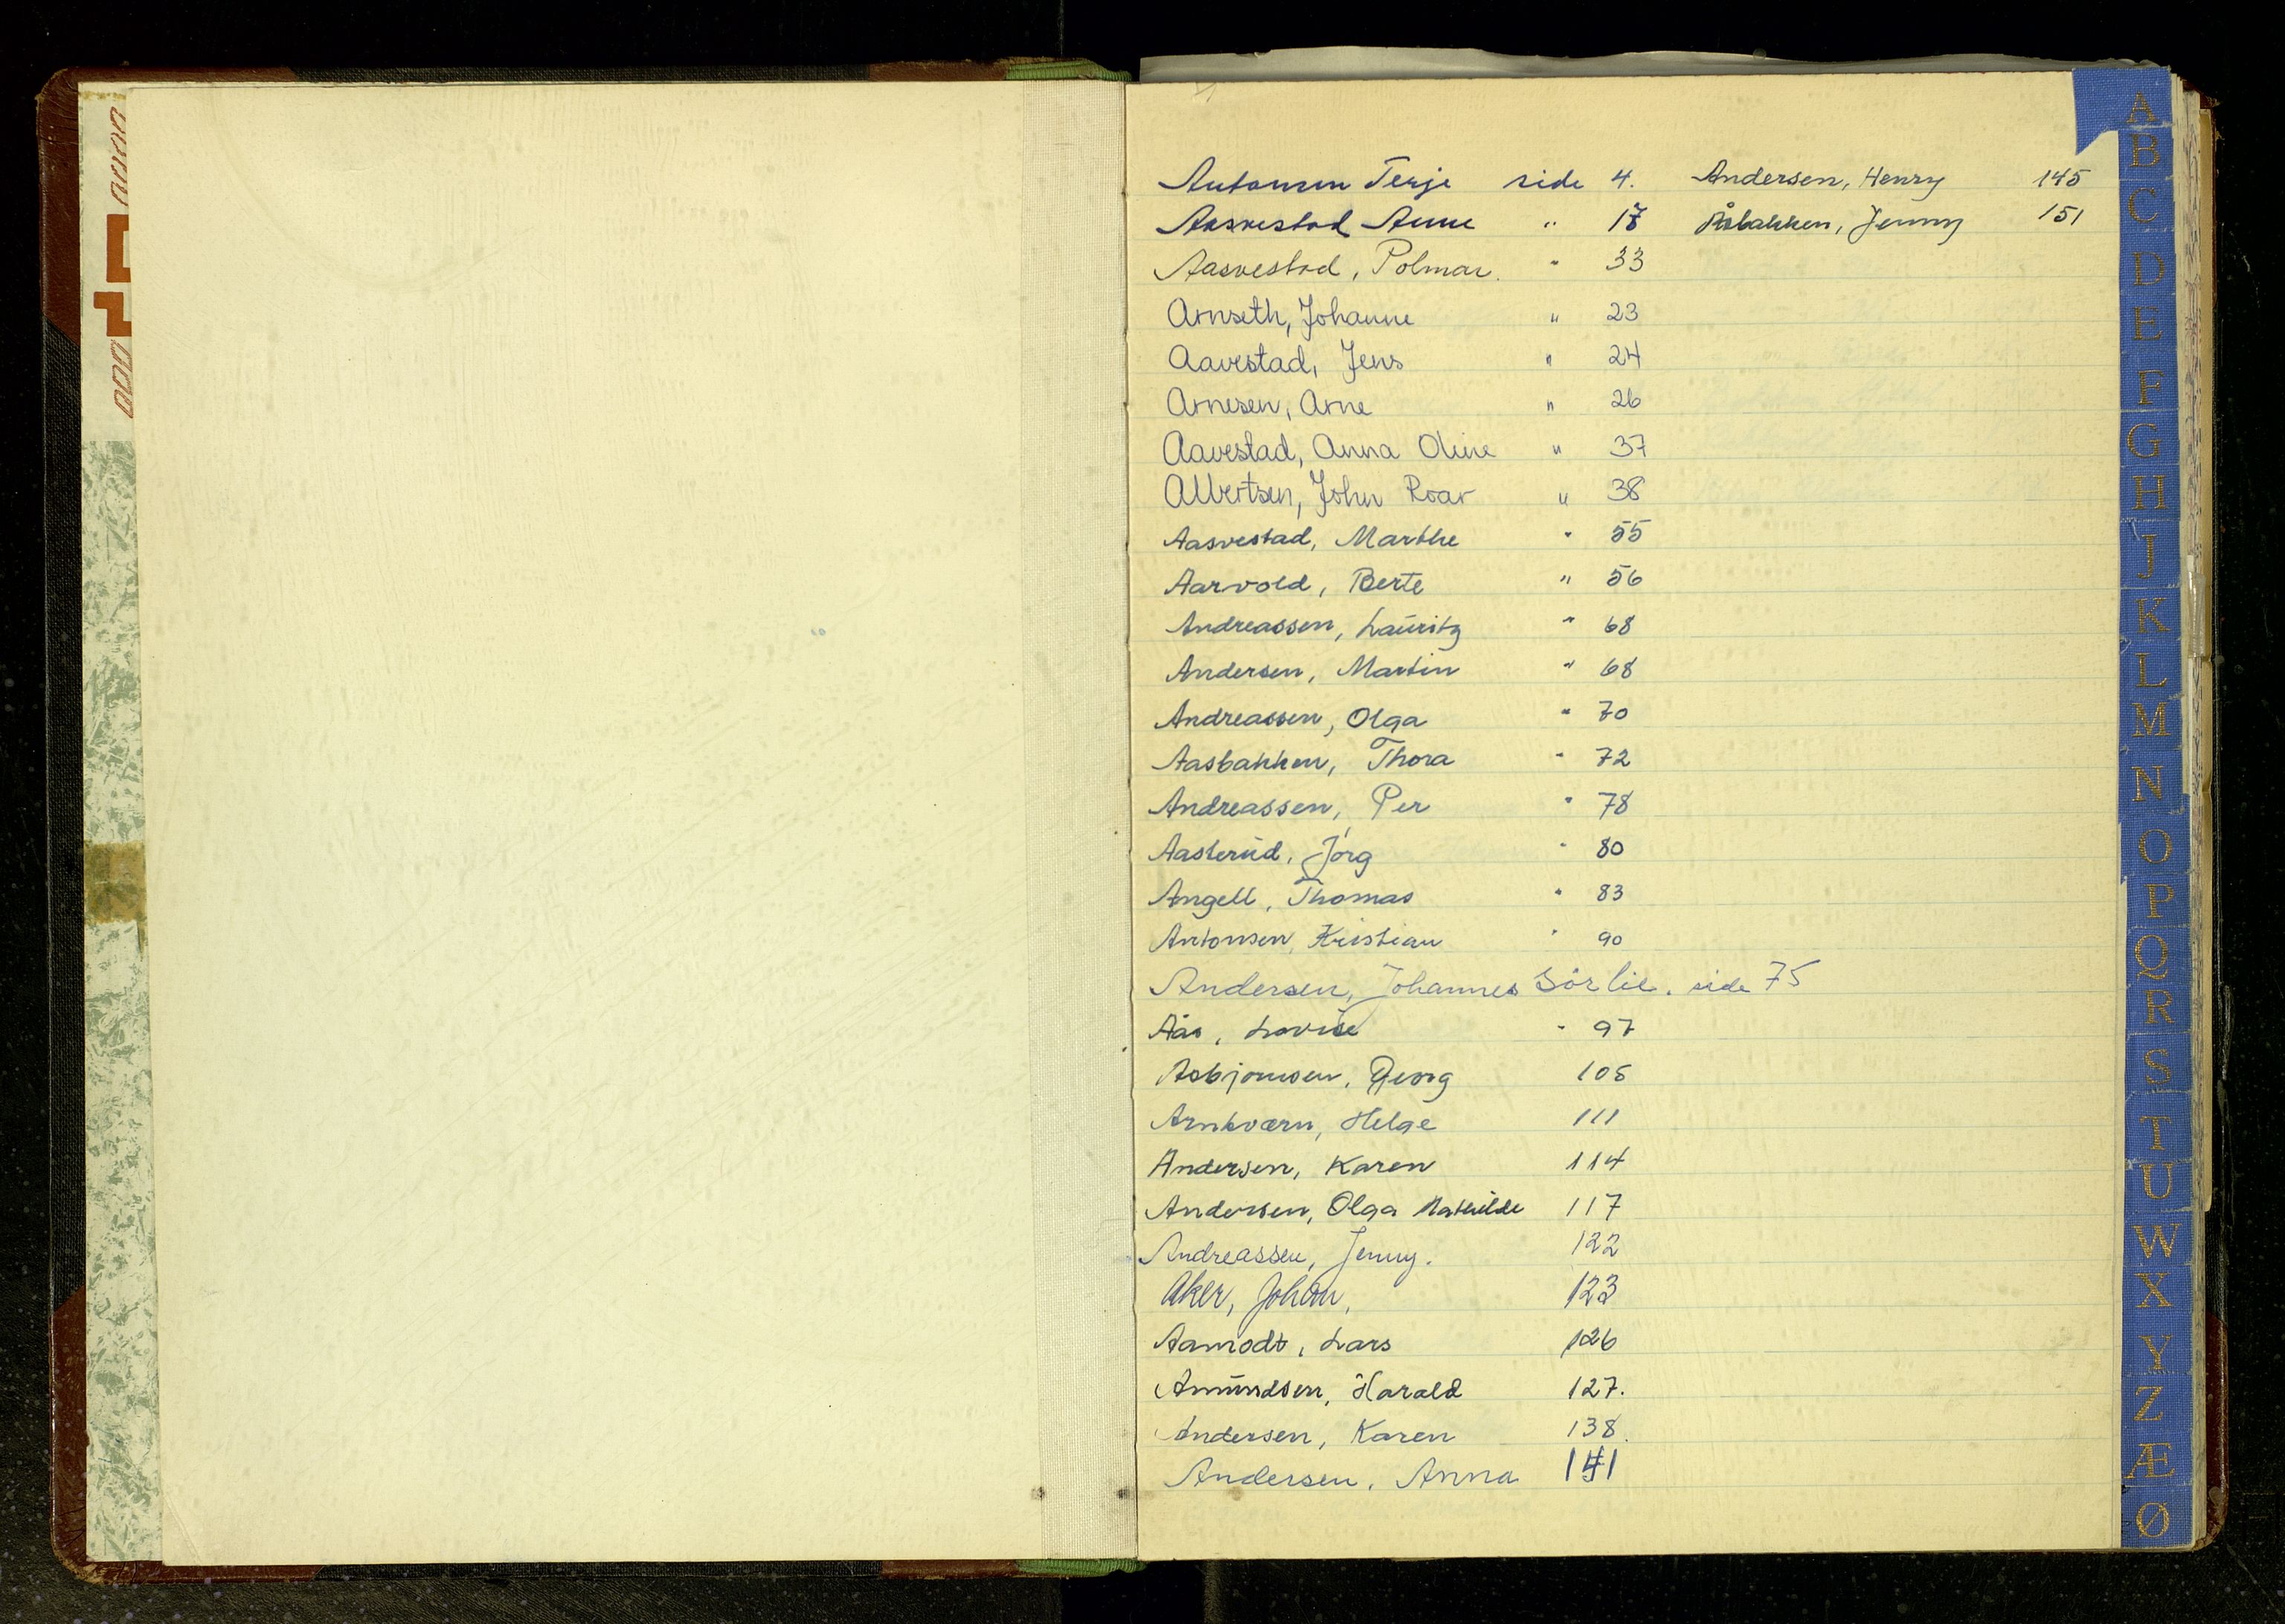 Antonsen Terje side 4.
Aasvestad Anne " 17
Aasvestad, Polmar. " 33
Arnseth, Johanne " 23
Aavestad, Jens " 24
Arnesen, Arne " 26
Aavestad, Anna Oline " 37
Albertsen, John Roar " 38
Aasvestad, Marthe " 55
Aarvold, Berte " 56
Andreassen, Lauritz " 68
Andersen, Martin " 68
Andreassen, Olga " 70
Aasbakken, Thora " 72
Andreassen, Per " 78
Aasterud, Jörg " 80
Angell, Thomas " 83
Antonsen, Kristian " 90
Andersen, Johannes Sörlie. side 75
Aas, Lovise " 97
Asbjørnsen, Georg 105
Arntværn, Helge 111
Andersen, Karen 114
Andersen, Olga Mathilde 117
Andreassen, Jenny. 122
Aker, Johan, 123
Aamodt, Lars 126
Amundsen, Harald 127.
Andersen, Karen 138.
Andersen, Anna 141
Andersen, Henry 145
Åsbakken, Jenny 151
A
B
C
D
E
F
G
H
J
K
L
M
N
O
P
Q
R
S
T
U
W
X
Y
Z
Æ
Ø